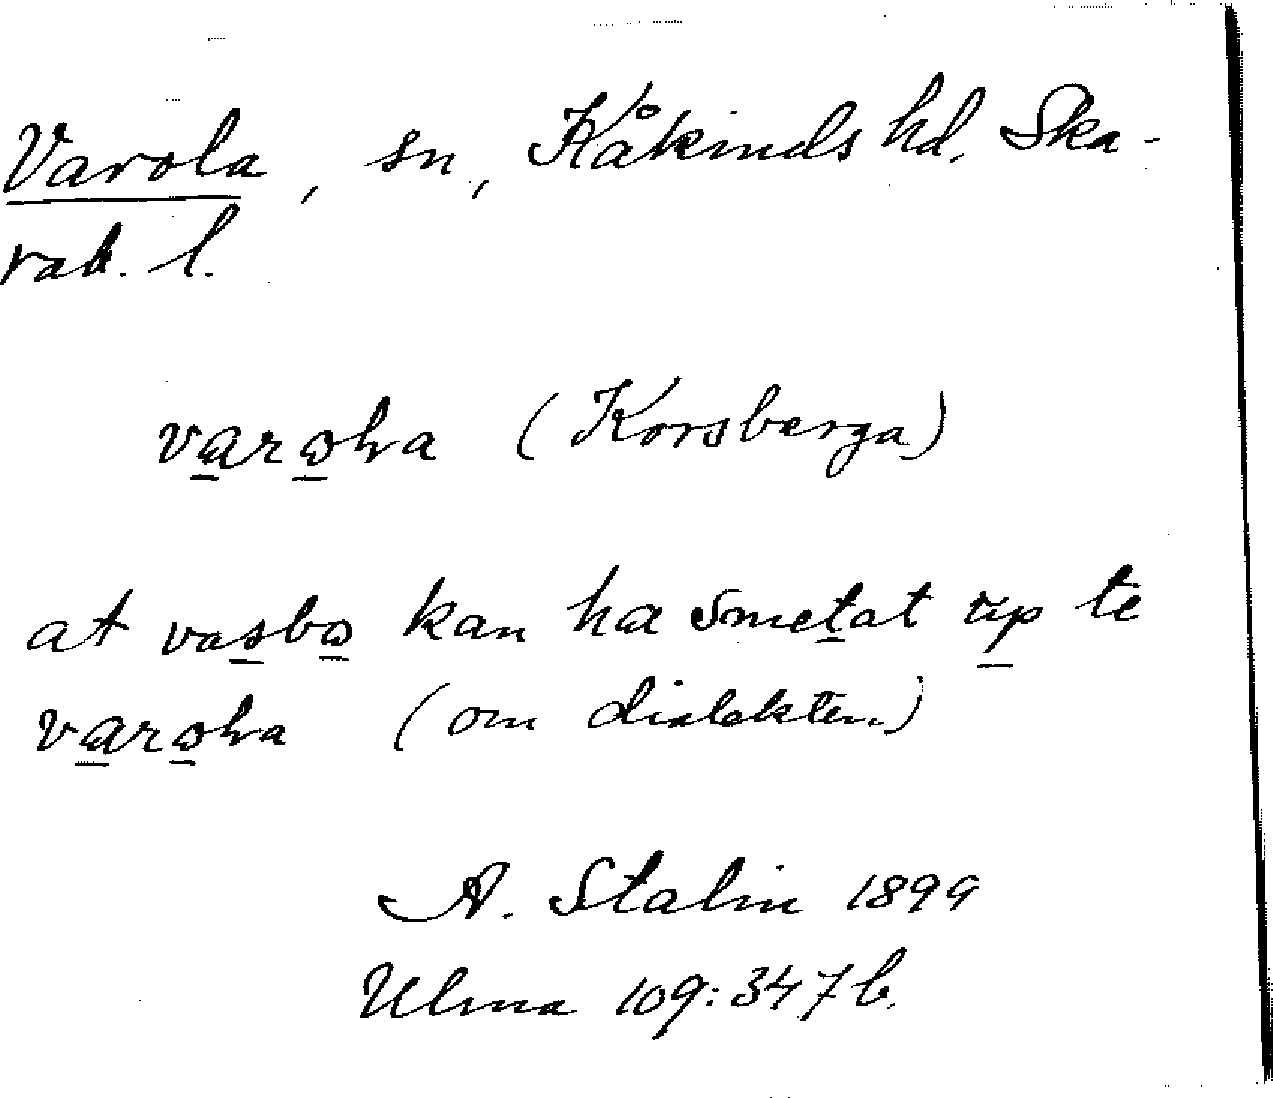 Varola, sn, Kåkinds hd. Ska-
rab. l.
varωɫa (Korsberga)
at vasbω kan ha smetat up te
varωɫa (om dialekten)
A. Stalin 1899
Ulma 109:347 b.